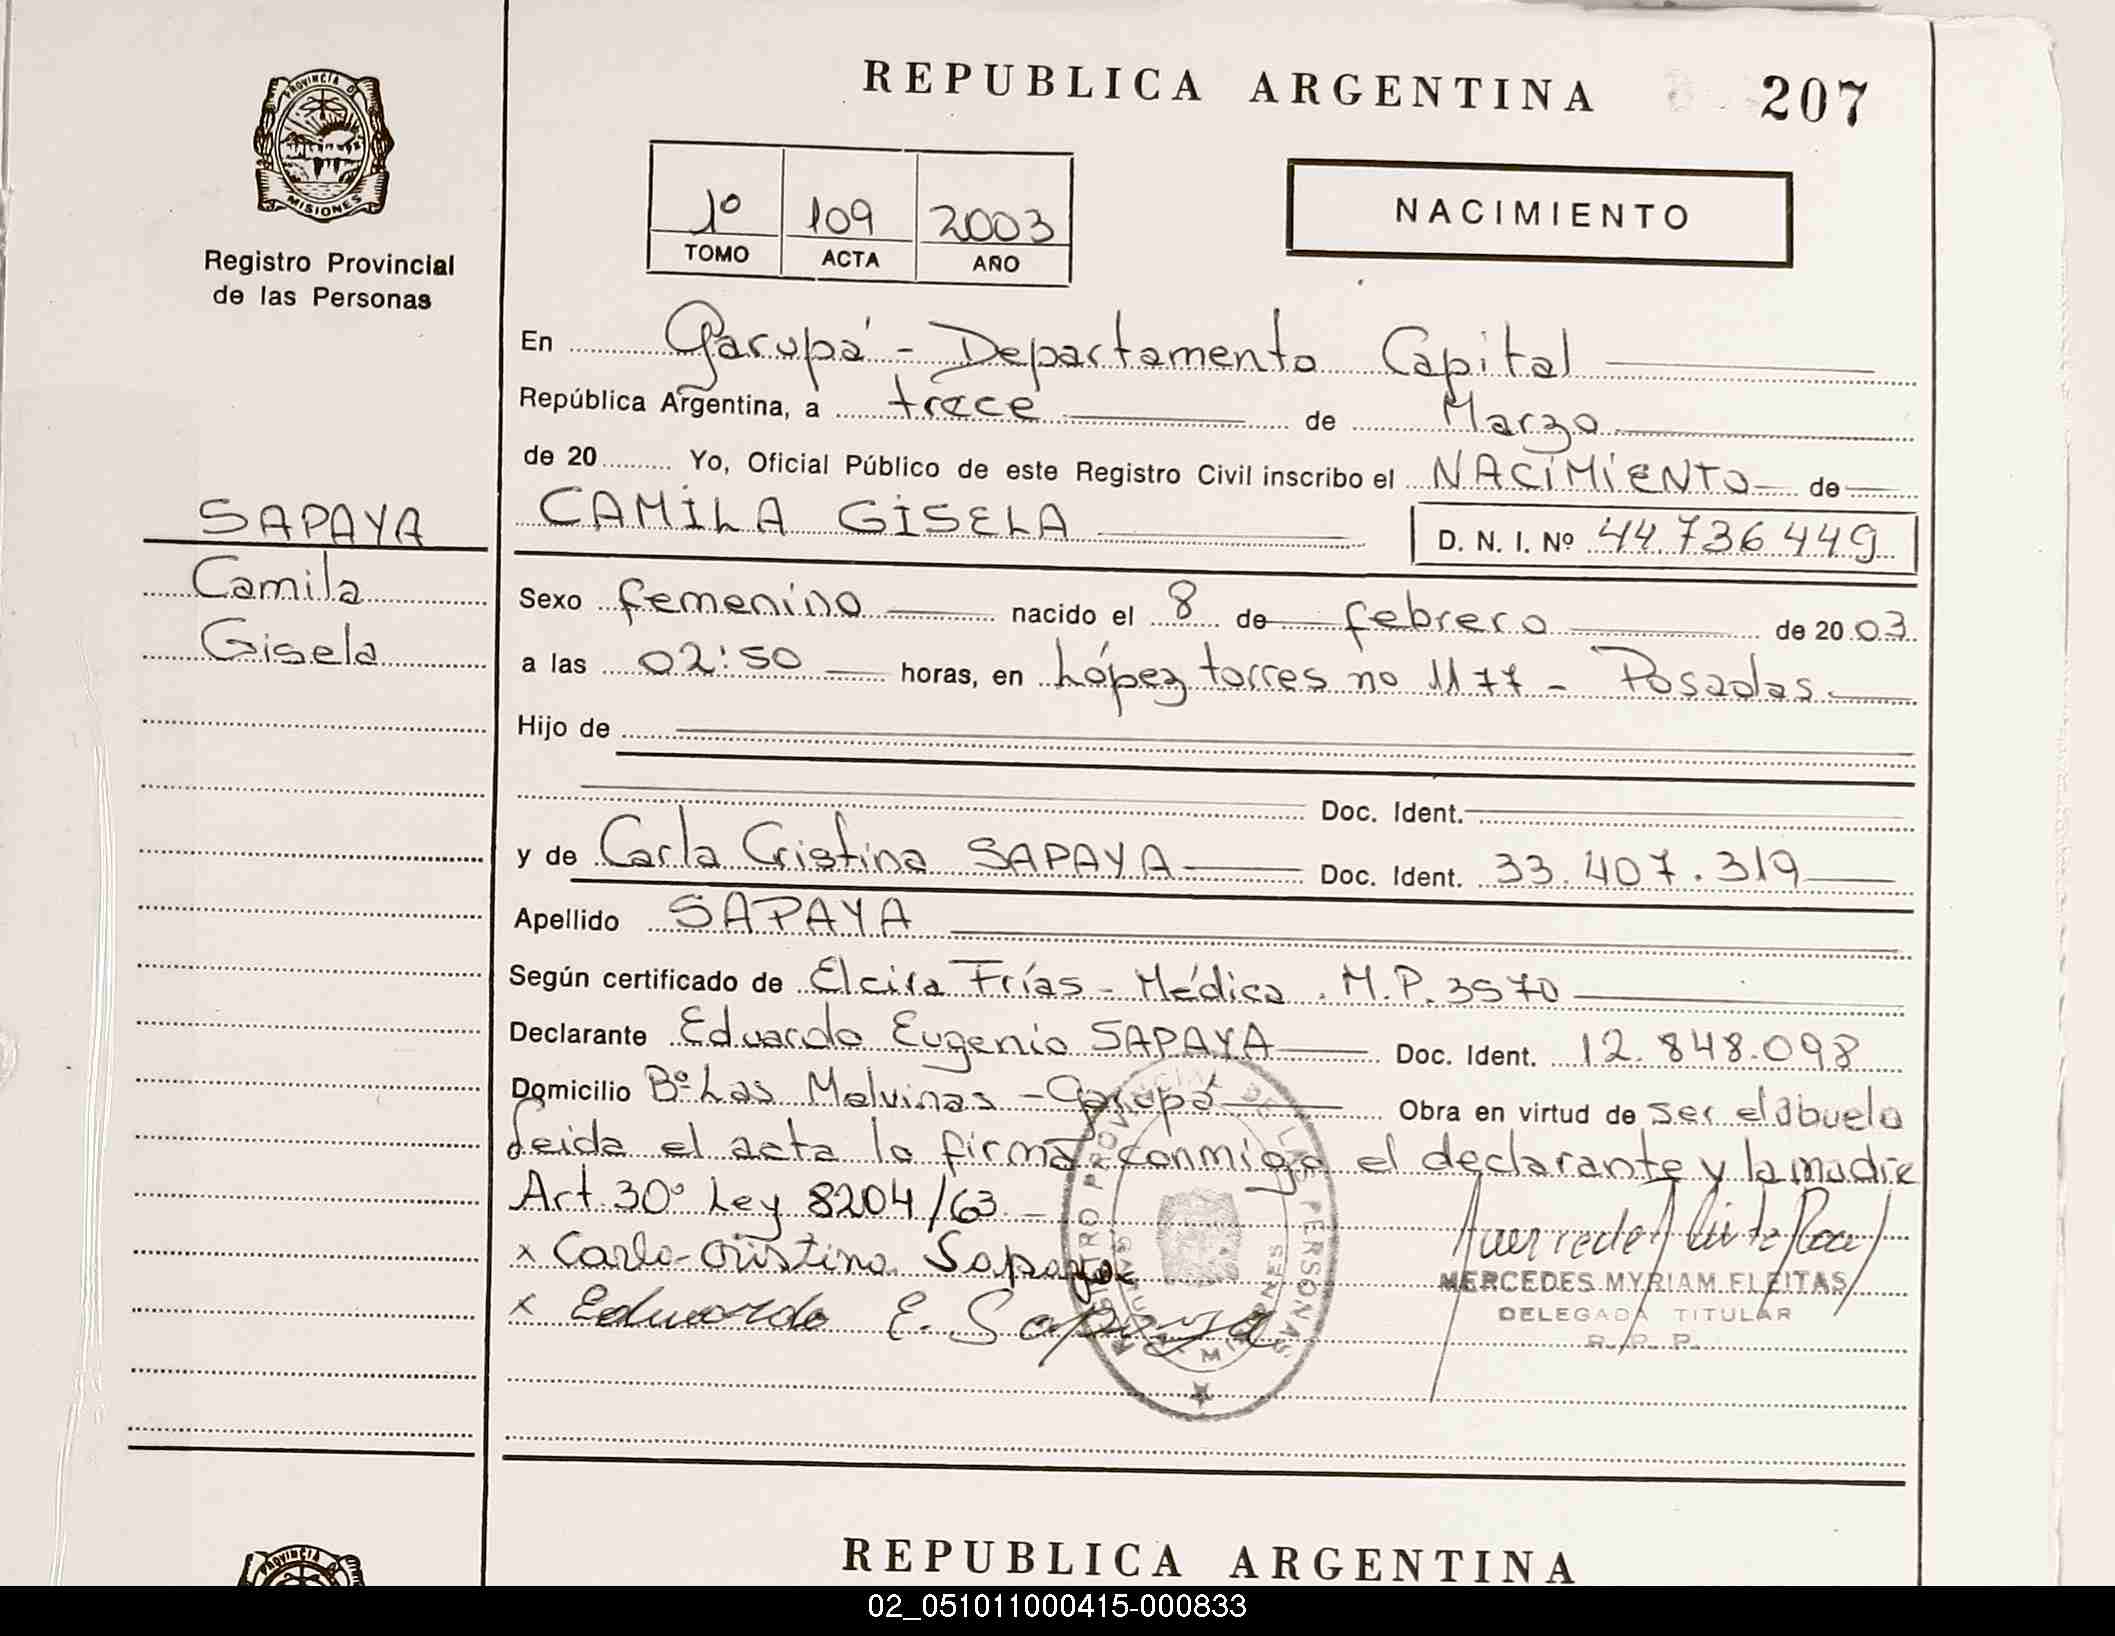 REPUBLICA ARGENTINA 207
PROVINCIA DE
MISIONES
Registro Provincial
de las Personas
1º 109 2003
TOMO ACTA AÑO
NACIMIENTO
En Garupá - Departamento Capital
República Argentina, a trece de Marzo
de 20 Yo, Oficial Público de este Registro Civil inscribo el NACIMIENTO de
SAPAYA
Camila
Gisela
CAMILA GISELA D. N. I. Nº 44.736.449
Sexo femenino nacido el 8 de febrero de 20 03
a las 02:50 horas, en López torres no 1177 - Posadas
Hijo de
Doc. Ident.
y de Carla Cristina SAPAYA Doc. Ident. 33.407.319
Apellido SAPAYA
Según certificado de Elcira Frías - Médica. M.P. 3570
Declarante Eduardo Eugenio SAPAYA Doc. Ident. 12.848.098
Domicilio Bº Las Malvinas - Garupá Obra en virtud de ser el abuelo
Leida el acta la firma conmigo el declarante y la madre
Art. 30º Ley 8204/63
x Carla Cristina Sapaya
x Eduardo E. Sapaya
REGISTRO PROVINCIAL DE LAS PERSONAS
MISIONES
MERCEDES MYRIAM FLEITAS
DELEGADA TITULAR
R. P. P.
PROVINCIA D
REPUBLICA ARGENTINA
02_051011000415-000833